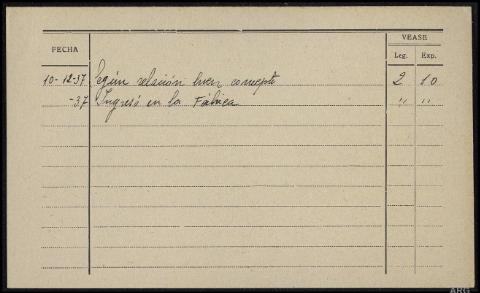 VEASE
FECHA
Leg. Exp.
10-12-37 Según relación buen concepto 2 10
-37 Ingresó en la Fábrica " "
ARG